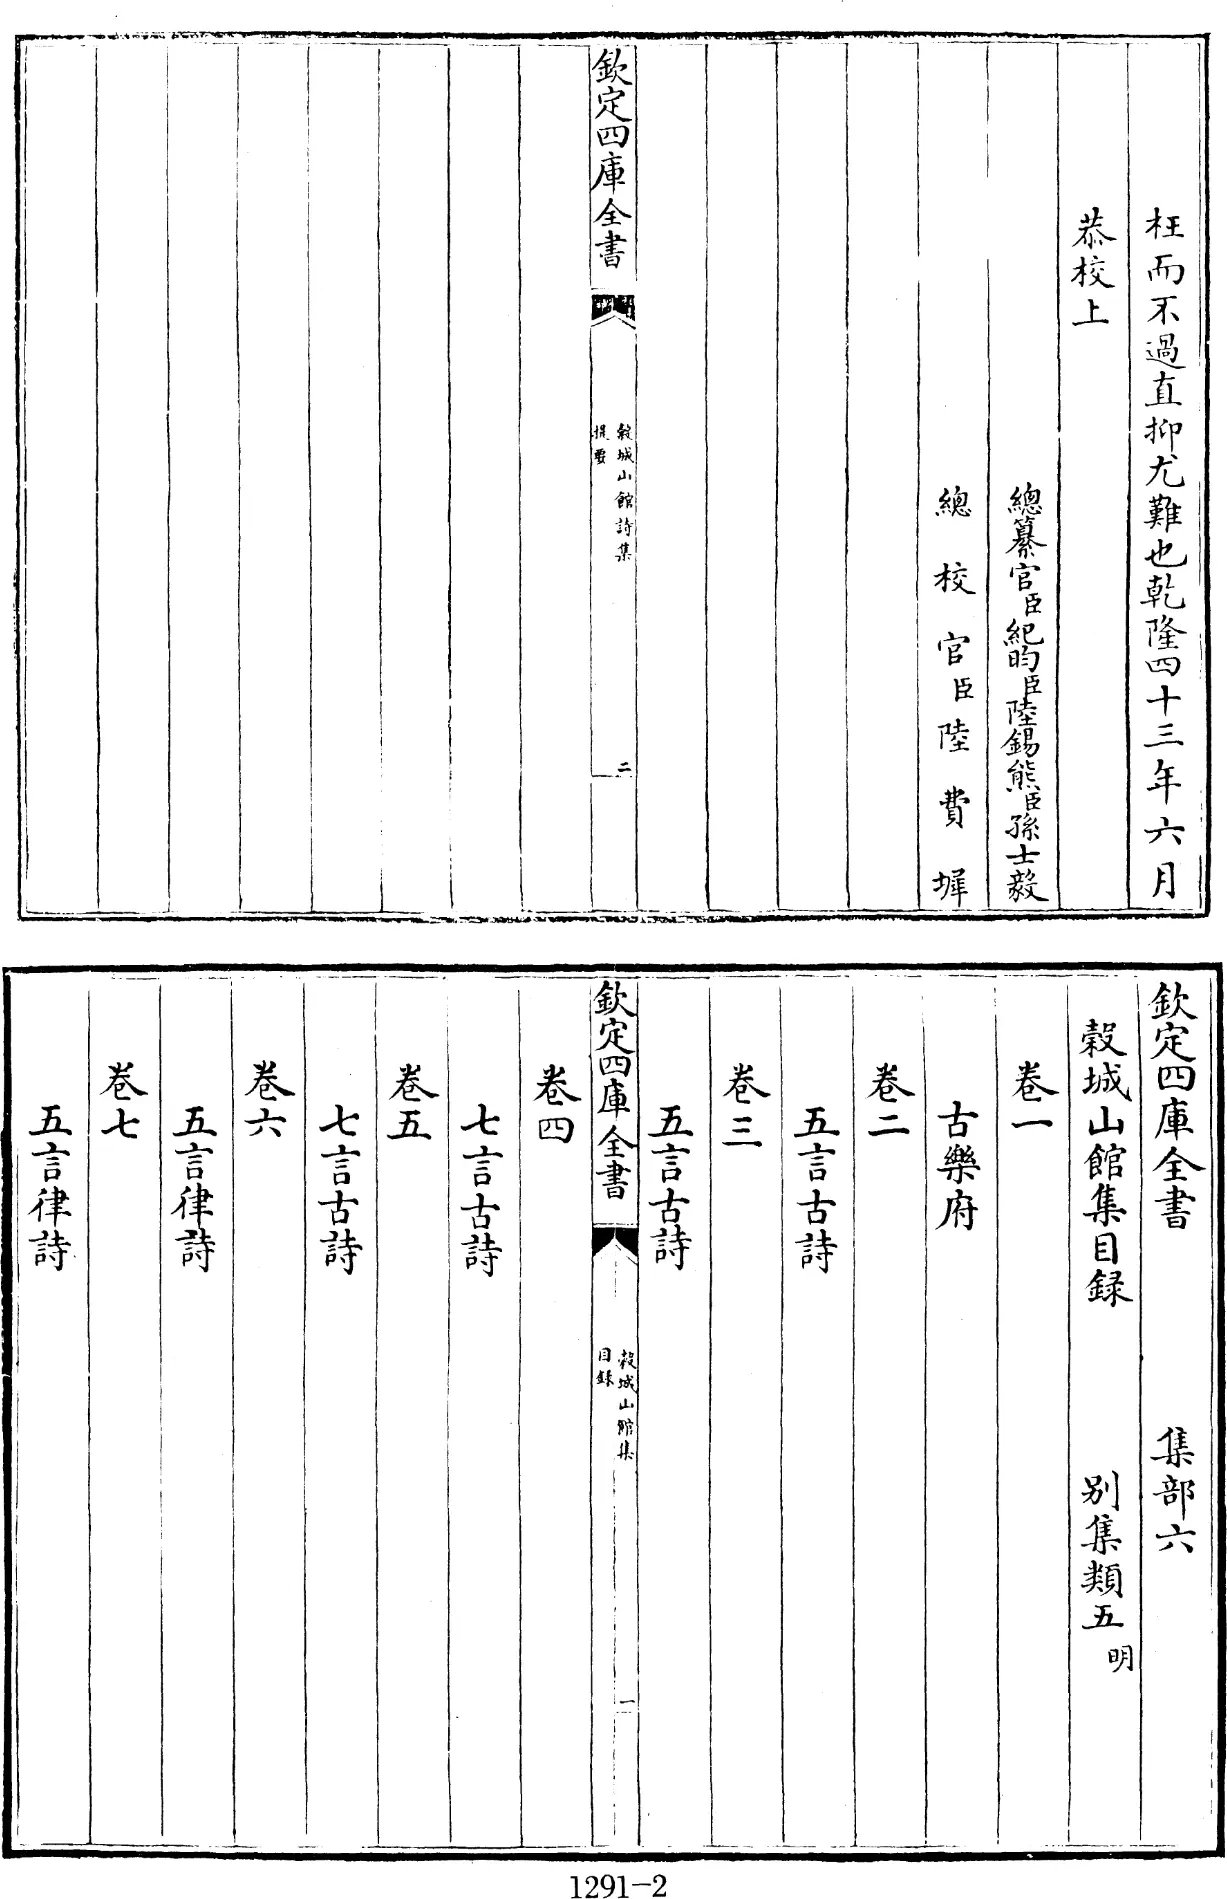 枉而不過直抑尤難也乾隆四十三年六月
恭校上
總纂官臣紀昀臣陸錫熊臣孫士毅
總校官臣陸費墀
欽定四庫全書
穀城山館詩集
提要
二
欽定四庫全書 集部六
穀城山館集目録 别集類五明
卷一
古樂府
卷二
五言古詩
卷三
五言古詩
欽定四庫全書
穀城山館集
目録
一
卷四
七言古詩
卷五
七言古詩
卷六
五言律詩
卷七
五言律詩
1291-2